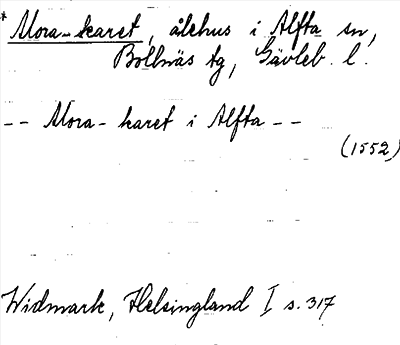 * Mora-karet, ålehus i Alfta sn,
Bollnäs tg, Gävleb. l.
-- Mora-karet i Alfta --
(1552)
Widmark, Helsingland I s. 317